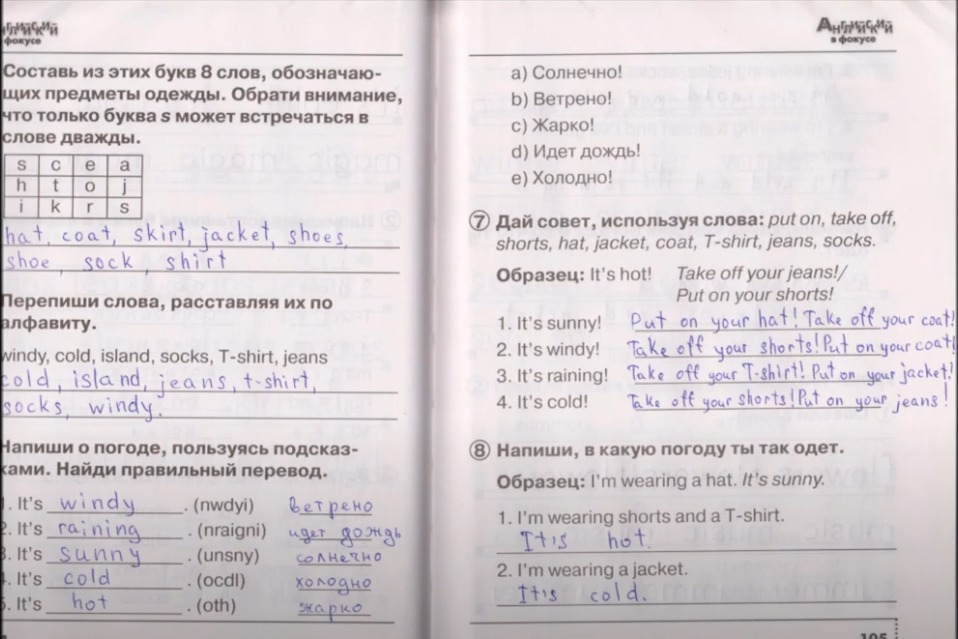 в фокусе
Составь из этих букв 8 слов, обозначаю-
щих предметы одежды. Обрати внимание,
что только буква s может встречаться в
слове дважды.
s c e a
h t o j
i k r s
hat, coat, skirt, jacket, shoes,
shoe, sock, shirt
Перепиши слова, расставляя их по
алфавиту.
windy, cold, island, socks, T-shirt, jeans
cold, island, jeans, t-shirt,
socks, windy.
Напиши о погоде, пользуясь подсказ-
ками. Найди правильный перевод.
1. It's windy. (nwdyi) ветрено
2. It's raining. (nraigni) идет дождь
3. It's sunny. (unsny) солнечно
4. It's cold. (ocdl) холодно
5. It's hot. (oth) жарко
Английский
в фокусе
a) Солнечно!
b) Ветрено!
c) Жарко!
d) Идет дождь!
e) Холодно!
7 Дай совет, используя слова: put on, take off,
shorts, hat, jacket, coat, T-shirt, jeans, socks.
Образец: It's hot! Take off your jeans!/
Put on your shorts!
1. It's sunny! Put on your hat! Take off your coat!
2. It's windy! Take off your shorts! Put on your coat!
3. It's raining! Take off your T-shirt! Put on your jacket!
4. It's cold! Take off your shorts! Put on your jeans!
8 Напиши, в какую погоду ты так одет.
Образец: I'm wearing a hat. It's sunny.
1. I'm wearing shorts and a T-shirt.
It's hot.
2. I'm wearing a jacket.
It's cold.
105